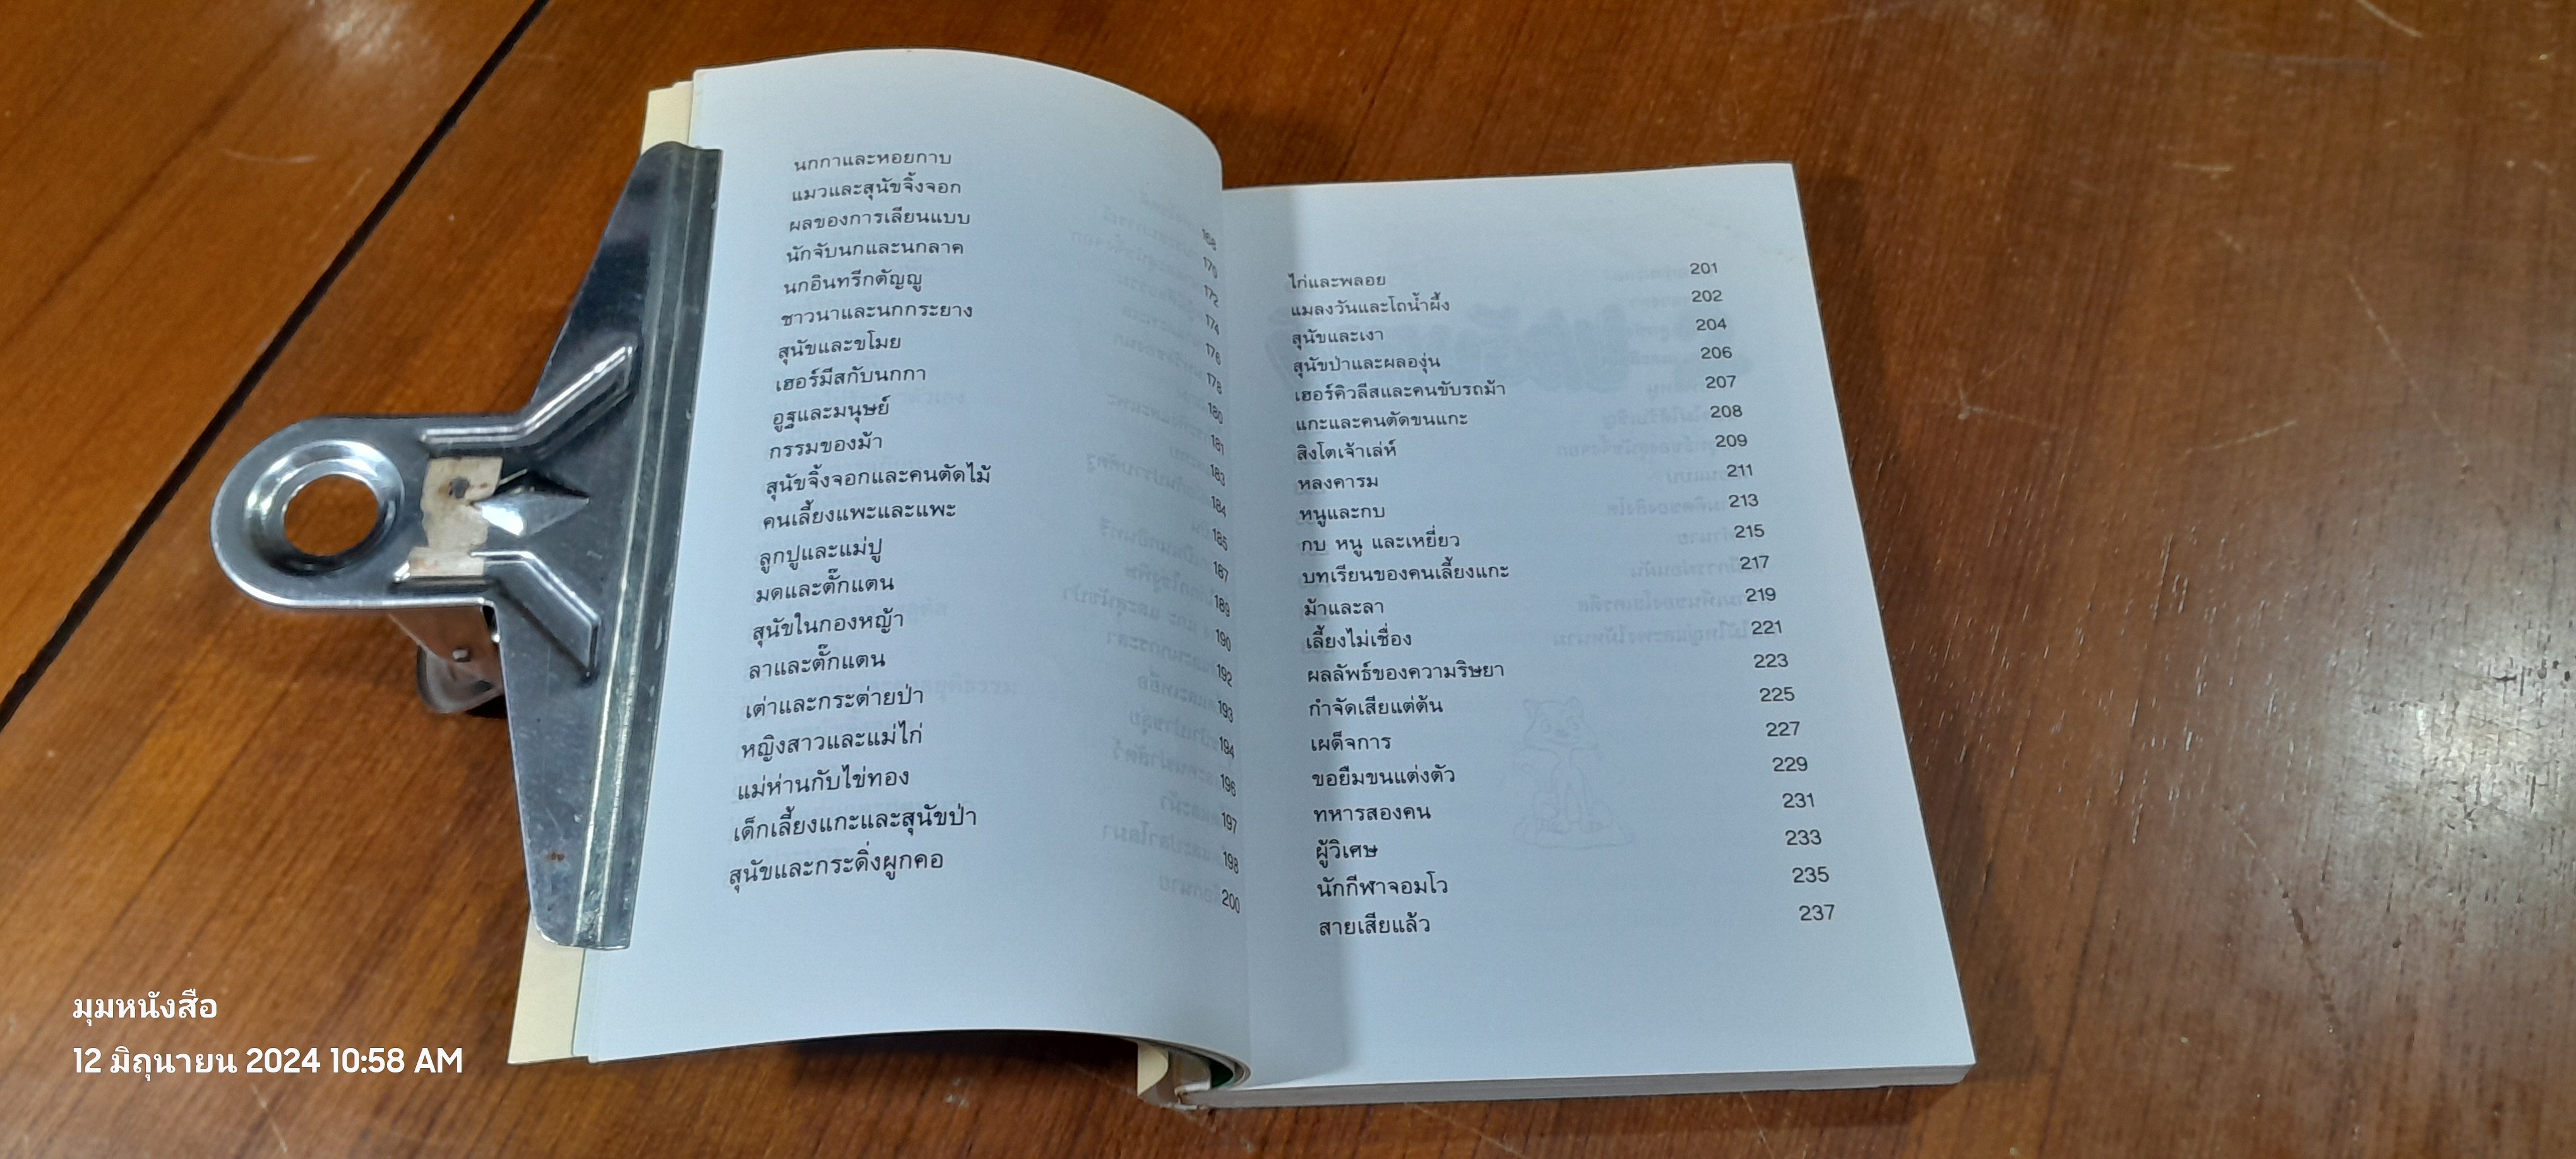 นกกาและหอยกาบ 168
แมวและสุนัขจิ้งจอก 170
ผลของการเลียนแบบ 172
นักจับนกและนกลาค 174
นกอินทรีกตัญญู 176
ชาวนาและนกกระยาง 178
สุนัขและขโมย 180
เฮอร์มีสกับนกกา 181
อูฐและมนุษย์ 183
กรรมของม้า 184
สุนัขจิ้งจอกและคนตัดไม้ 185
คนเลี้ยงแพะและแพะ 187
ลูกปูและแม่ปู 189
มดและตั๊กแตน 190
สุนัขในกองหญ้า 192
ลาและตั๊กแตน 193
เต่าและกระต่ายป่า 194
หญิงสาวและแม่ไก่ 196
แม่ห่านกับไข่ทอง 197
เด็กเลี้ยงแกะและสุนัขป่า 198
สุนัขและกระดิ่งผูกคอ 200
ไก่และพลอย 201
แมลงวันและโถน้ำผึ้ง 202
สุนัขและเงา 204
สุนัขป่าและผลองุ่น 206
เฮอร์คิวลีสและคนขับรถม้า 207
แกะและคนตัดขนแกะ 208
สิงโตเจ้าเล่ห์ 209
หลงคารม 211
หนูและกบ 213
กบ หนู และเหยี่ยว 215
บทเรียนของคนเลี้ยงแกะ 217
ม้าและลา 219
เลี้ยงไม่เชื่อง 221
ผลลัพธ์ของความริษยา 223
กำจัดเสียแต่ต้น 225
เผด็จการ 227
ขอยืมขนแต่งตัว 229
ทหารสองคน 231
ผู้วิเศษ 233
นักกีฬาจอมโว 235
สายเสียแล้ว 237
มุมหนังสือ
12 มิถุนายน 2024 10:58 AM